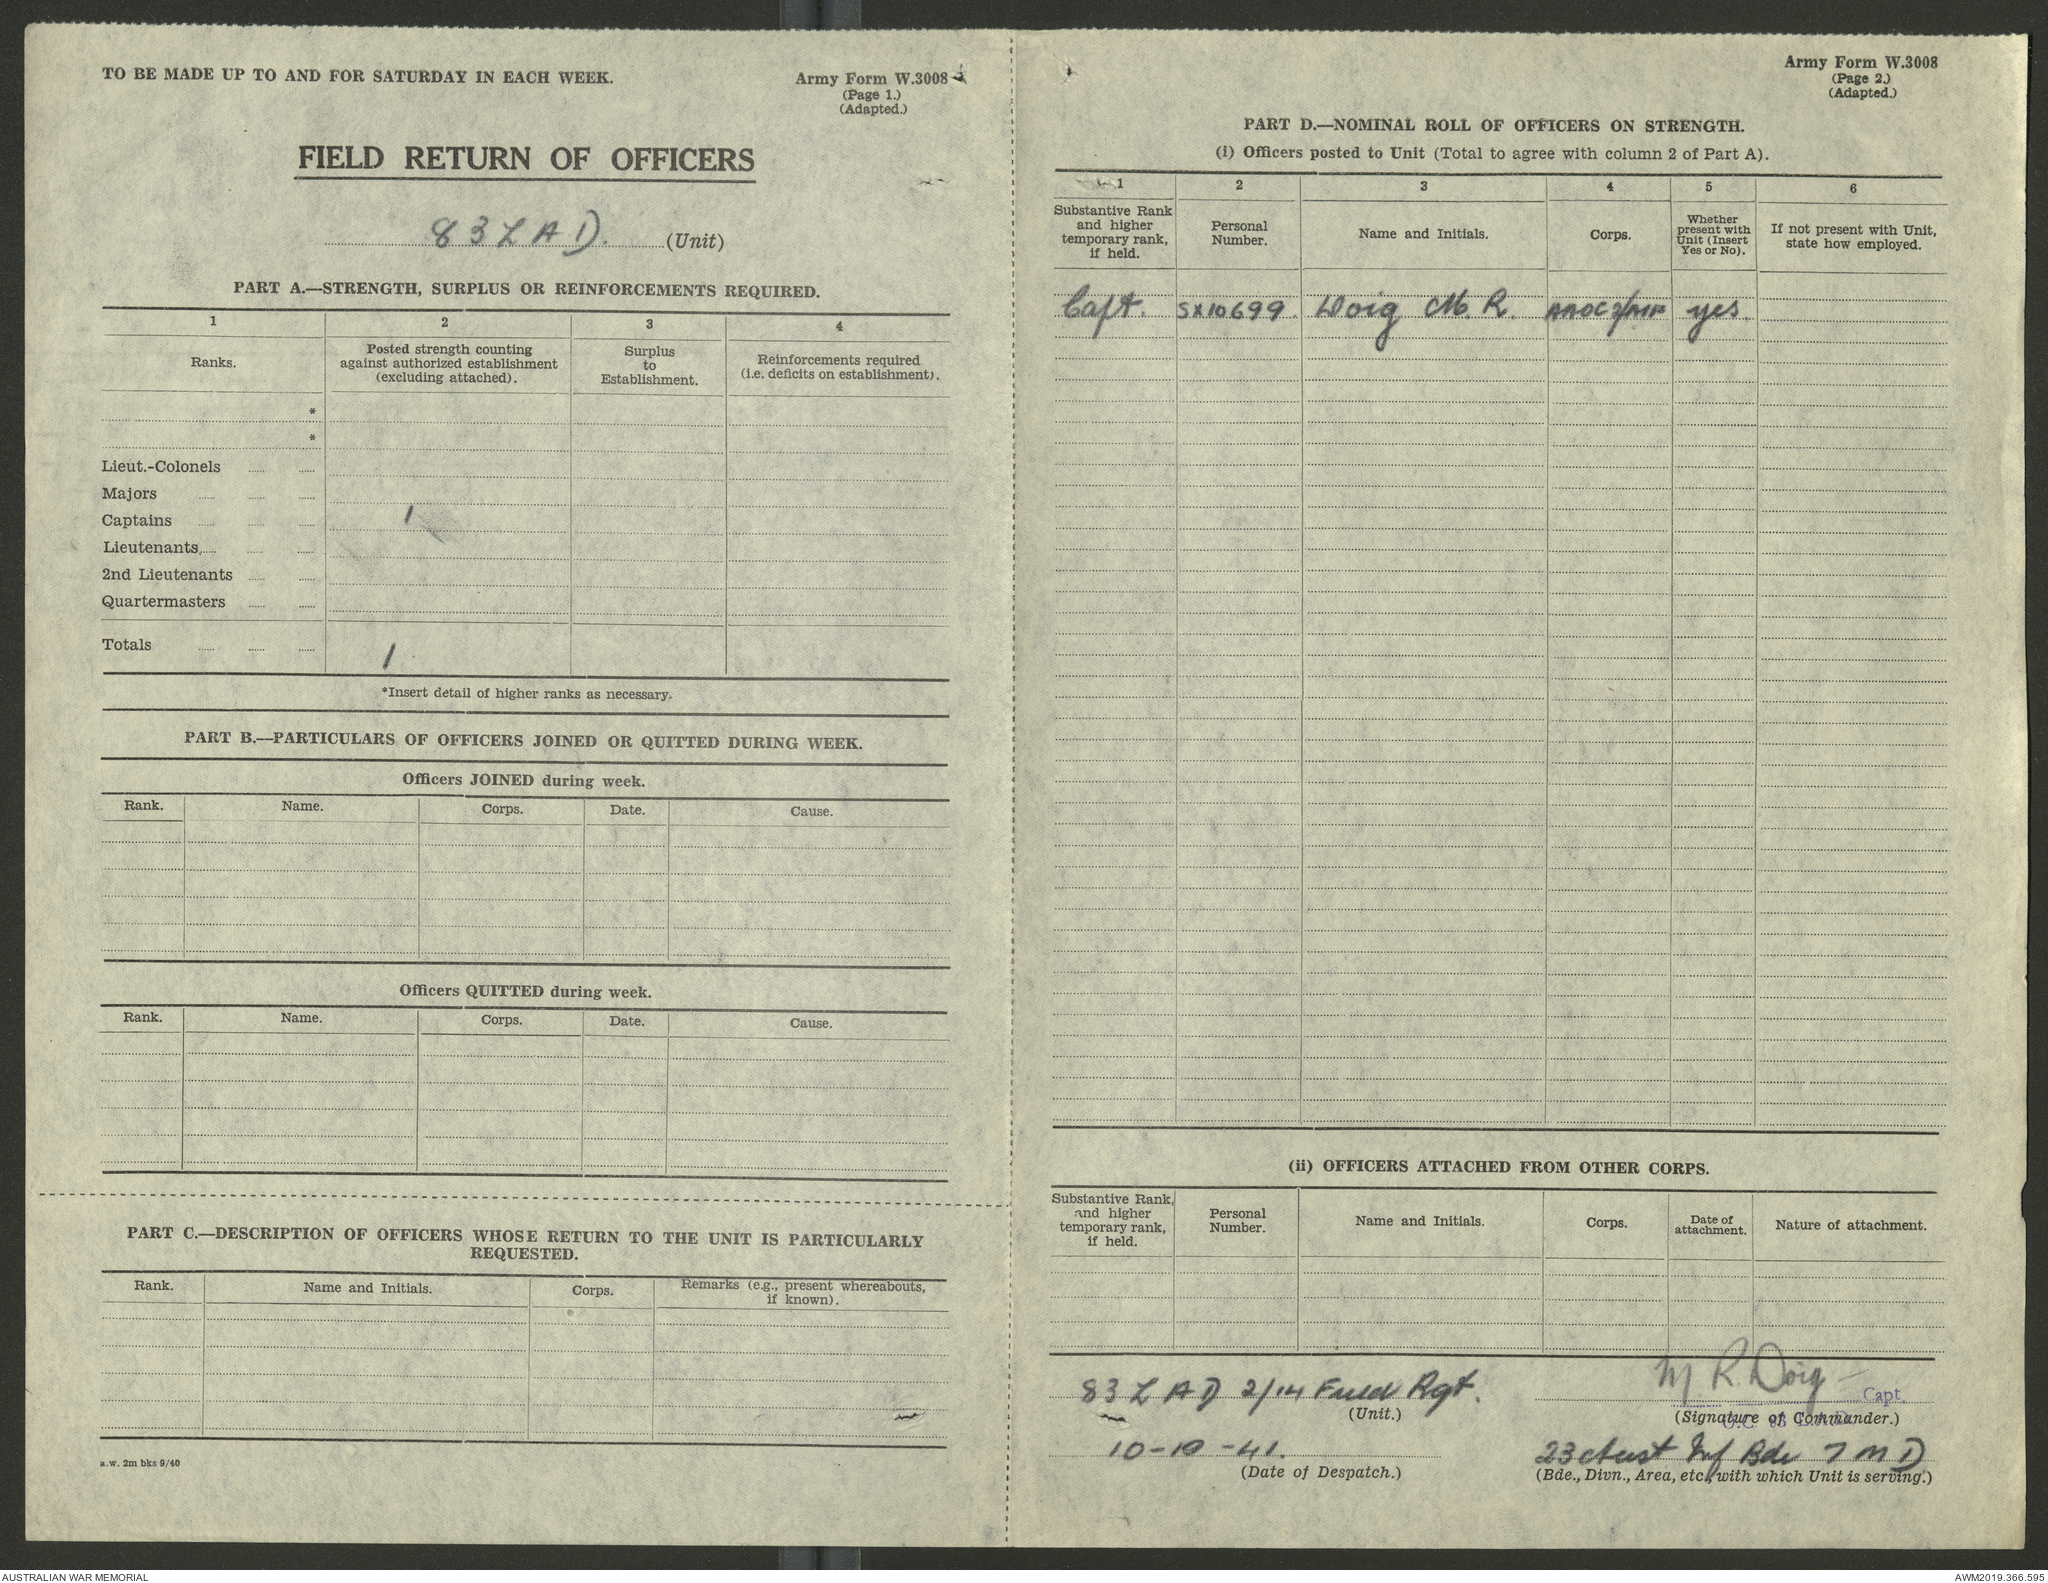 TO BE MADE UP TO AND FOR SATURDAY IN EACH WEEK.
Army Form W.3008
(Page 1.)
(Adapted.)
FIELD RETURN OF OFFICERS
83 L A D. (Unit)
PART A.—STRENGTH, SURPLUS OR REINFORCEMENTS REQUIRED.
1 2 3 4
Ranks.
Posted strength counting
against authorized establishment
(excluding attached).
Surplus
to
Establishment.
Reinforcements required
(i.e. deficits on establishment).
*
*
Lieut.-Colonels
Majors
Captains 1
Lieutenants
2nd Lieutenants
Quartermasters
Totals 1
*Insert detail of higher ranks as necessary.
PART B.—PARTICULARS OF OFFICERS JOINED OR QUITTED DURING WEEK.
Officers JOINED during week.
Rank. Name. Corps. Date. Cause.
Officers QUITTED during week.
Rank. Name. Corps. Date. Cause.
PART C.—DESCRIPTION OF OFFICERS WHOSE RETURN TO THE UNIT IS PARTICULARLY
REQUESTED.
Rank. Name and Initials. Corps.
Remarks (e.g., present whereabouts,
if known).
a.w. 2m bks 9/40
Army Form W.3008
(Page 2.)
(Adapted.)
PART D.—NOMINAL ROLL OF OFFICERS ON STRENGTH.
(i) Officers posted to Unit (Total to agree with column 2 of Part A).
1 2 3 4 5 6
Substantive Rank
and higher
temporary rank,
if held.
Personal
Number.
Name and Initials.
Corps.
Whether
present with
Unit (Insert
Yes or No).
If not present with Unit,
state how employed.
Capt. SX10699. Doig M. R. yes.
(ii) OFFICERS ATTACHED FROM OTHER CORPS.
Substantive Rank,
and higher
temporary rank,
if held.
Personal
Number.
Name and Initials.
Corps.
Date of
attachment.
Nature of attachment.
83 L A D 2/14 Field Rgt.
(Unit.)
M. R. Doig Capt.
O.C. 83 L.A.D.
(Signature of Commander.)
10-10-41.
(Date of Despatch.)
23 Aust Inf Bde 7 M D
(Bde., Divn., Area, etc., with which Unit is serving.)
AUSTRALIAN WAR MEMORIAL
AWM2019.366.595